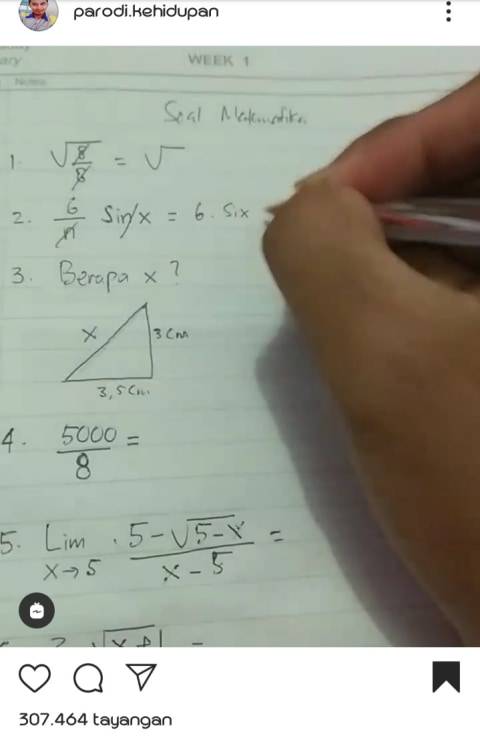 parodi.kehidupan
ary
WEEK 1
Notes
Soal Matematika
1. √8/8 = √
2. 6/n Sin x = 6. Six
3. Berapa x?
x
3 Cm
3,5 Cm
4. 5000/8 =
5. Lim x→5 5-√5-x / x-5 =
307.464 tayangan